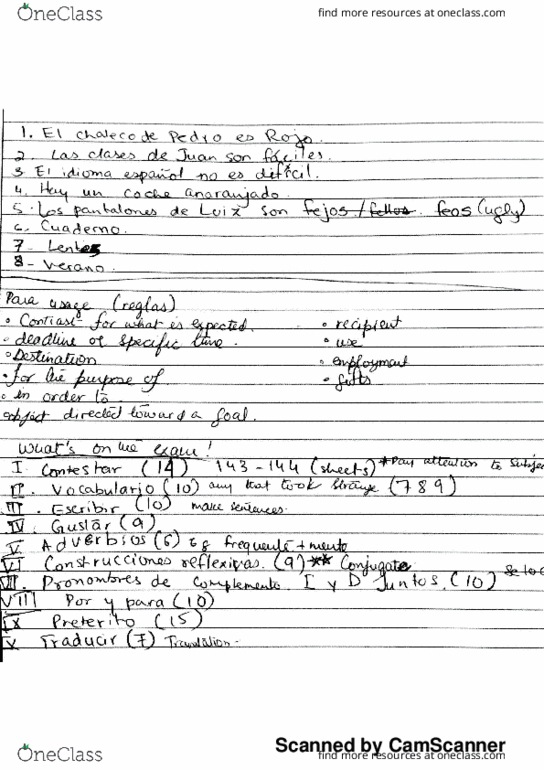 OneClass
find more resources at oneclass.com
1. El chaleco de Pedro es Rojo.
2. Las clases de Juan son fáciles.
3 El idioma español no es difícil.
4. Hay un coche anaranjado.
5. Los pantalones de Luiz son fejos / feos (ugly)
6. Cuaderno.
7 - Lentes
8 - Verano.
Para usage (reglas)
• Contrast for what is expected. • recipient
- deadline of specific time. • use
• Destination • employment
• for the purpose of • gifts
• in order to
object directed toward a goal.
What's on the exam!
I. Contestar (14) 143-144 (sheets) *Pay attention to Subje
II. Vocabulario (10) any that look strange (7 8 9)
III. Escribir (10) make sentences.
IV. Gustar (9)
V. Adverbios (6) eg frequente + mente
VI Construcciones reflexivas. (9) ** Conjugate
VII. Pronombres de complemento I y D Juntos. (10) Se lo
VIII Por y para (10)
IX Preterito (15)
X Traducir (7) Translation -
Scanned by CamScanner
OneClass
find more resources at oneclass.com